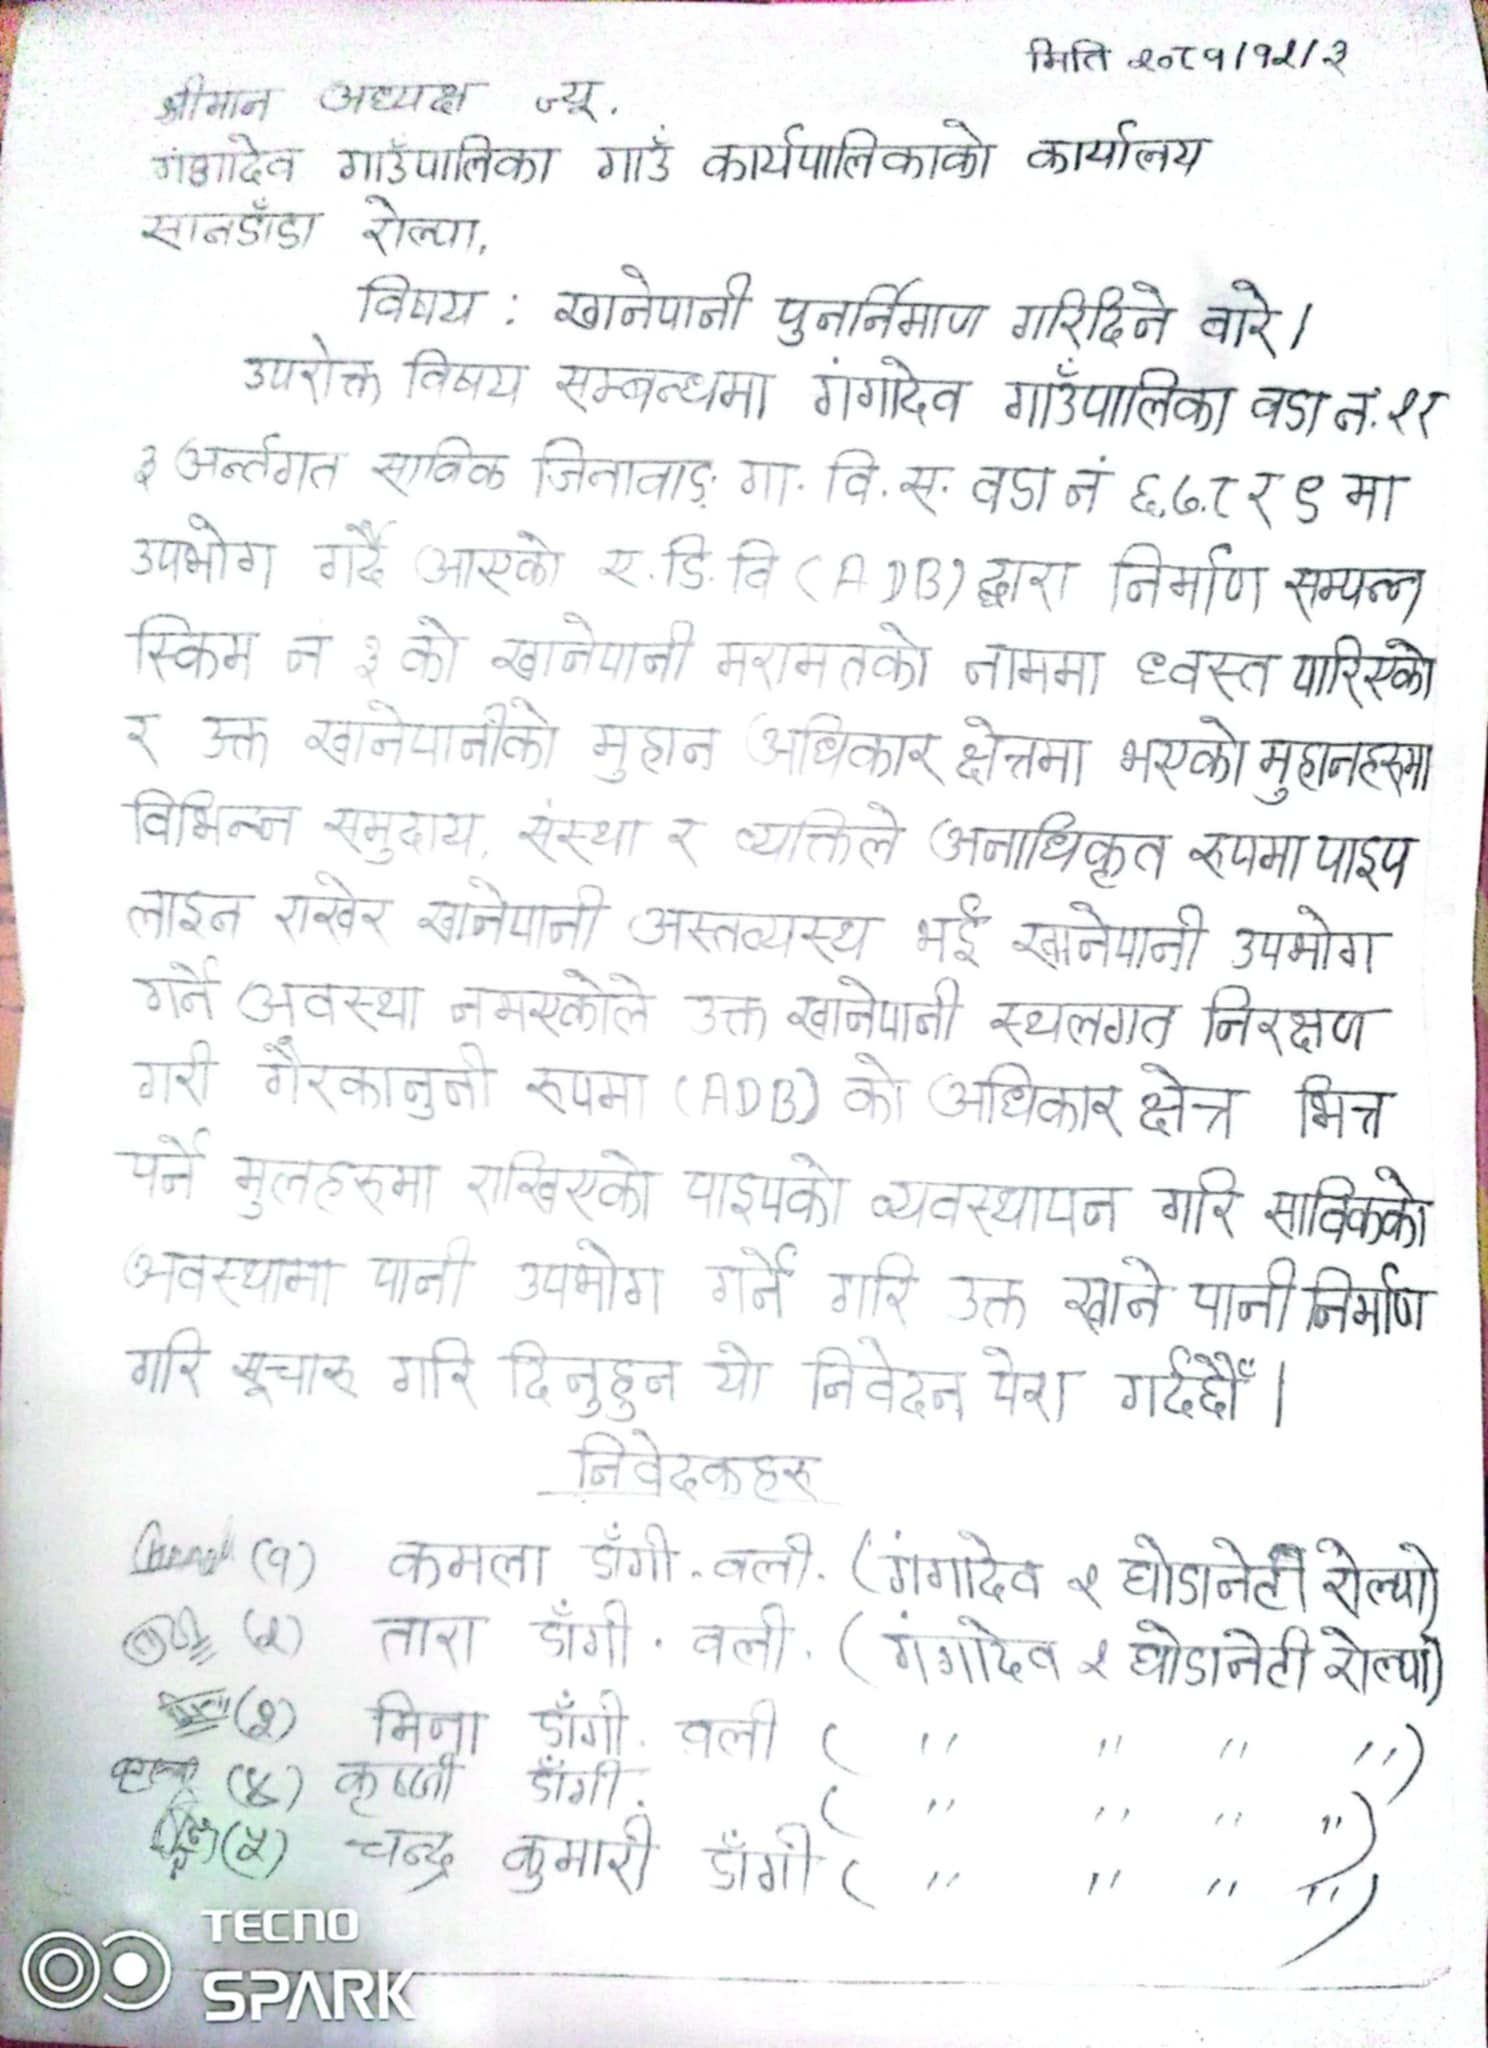 मिति २०८१/१२/३
श्रीमान अध्यक्ष ज्यू.
गंगादेव गाउँपालिका गाउँ कार्यपालिकाको कार्यालय
सानडाँडा रोल्पा,
विषय : खानेपानी पुनर्निमाण गरिदिने वारे।
उपरोक्त विषय सम्बन्धमा गंगादेव गाउँपालिका वडा नं. २ र
३ अर्न्तगत साविक जिनावाङ गा. वि. स. वडा नं ६,७,८ र ९ मा
उपभोग गर्दै आएको ए. डि. वि (ADB) द्वारा निर्माण सम्पन्न
स्किम नं ३ को खानेपानी मरामतको नाममा ध्वस्त पारिएको
र उक्त खानेपानीको मुहान अधिकार क्षेत्रमा भएको मुहानहरुमा
विभिन्न समुदाय, संस्था र व्यक्तिले अनाधिकृत रुपमा पाइप
लाइन राखेर खानेपानी अस्तव्यस्थ भई खानेपानी उपभोग
गर्ने अवस्था नभएकोले उक्त खानेपानी स्थलगत निरक्षण
गरी गैरकानुनी रुपमा (ADB) को अधिकार क्षेत्र भित्र
पर्ने मुलहरुमा राखिएको पाइपको व्यवस्थापन गरि साविकको
अवस्थामा पानी उपभोग गर्ने गरि उक्त खाने पानी निर्माण
गरि सूचारु गरि दिनुहुन यो निवेदन पेश गर्दछौँ।
निवेदकहरु
(१) कमला डाँगी. वली. (गंगादेव २ घोडानेटी रोल्पा)
(२) तारा डाँगी. वली. (गंगादेव २ घोडानेटी रोल्पा)
(३) मिना डाँगी. वली ( " " " ")
(४) कृष्णी डाँगी. ( " " " ")
(५) चन्द्र कुमारी डाँगी ( " " " ")
TECNO
SPARK